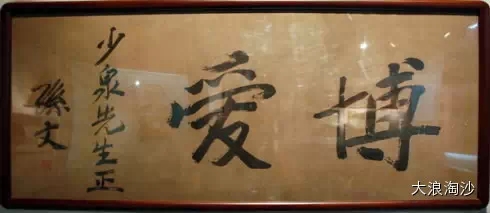 博愛
少泉先生正
孫文
大浪淘沙